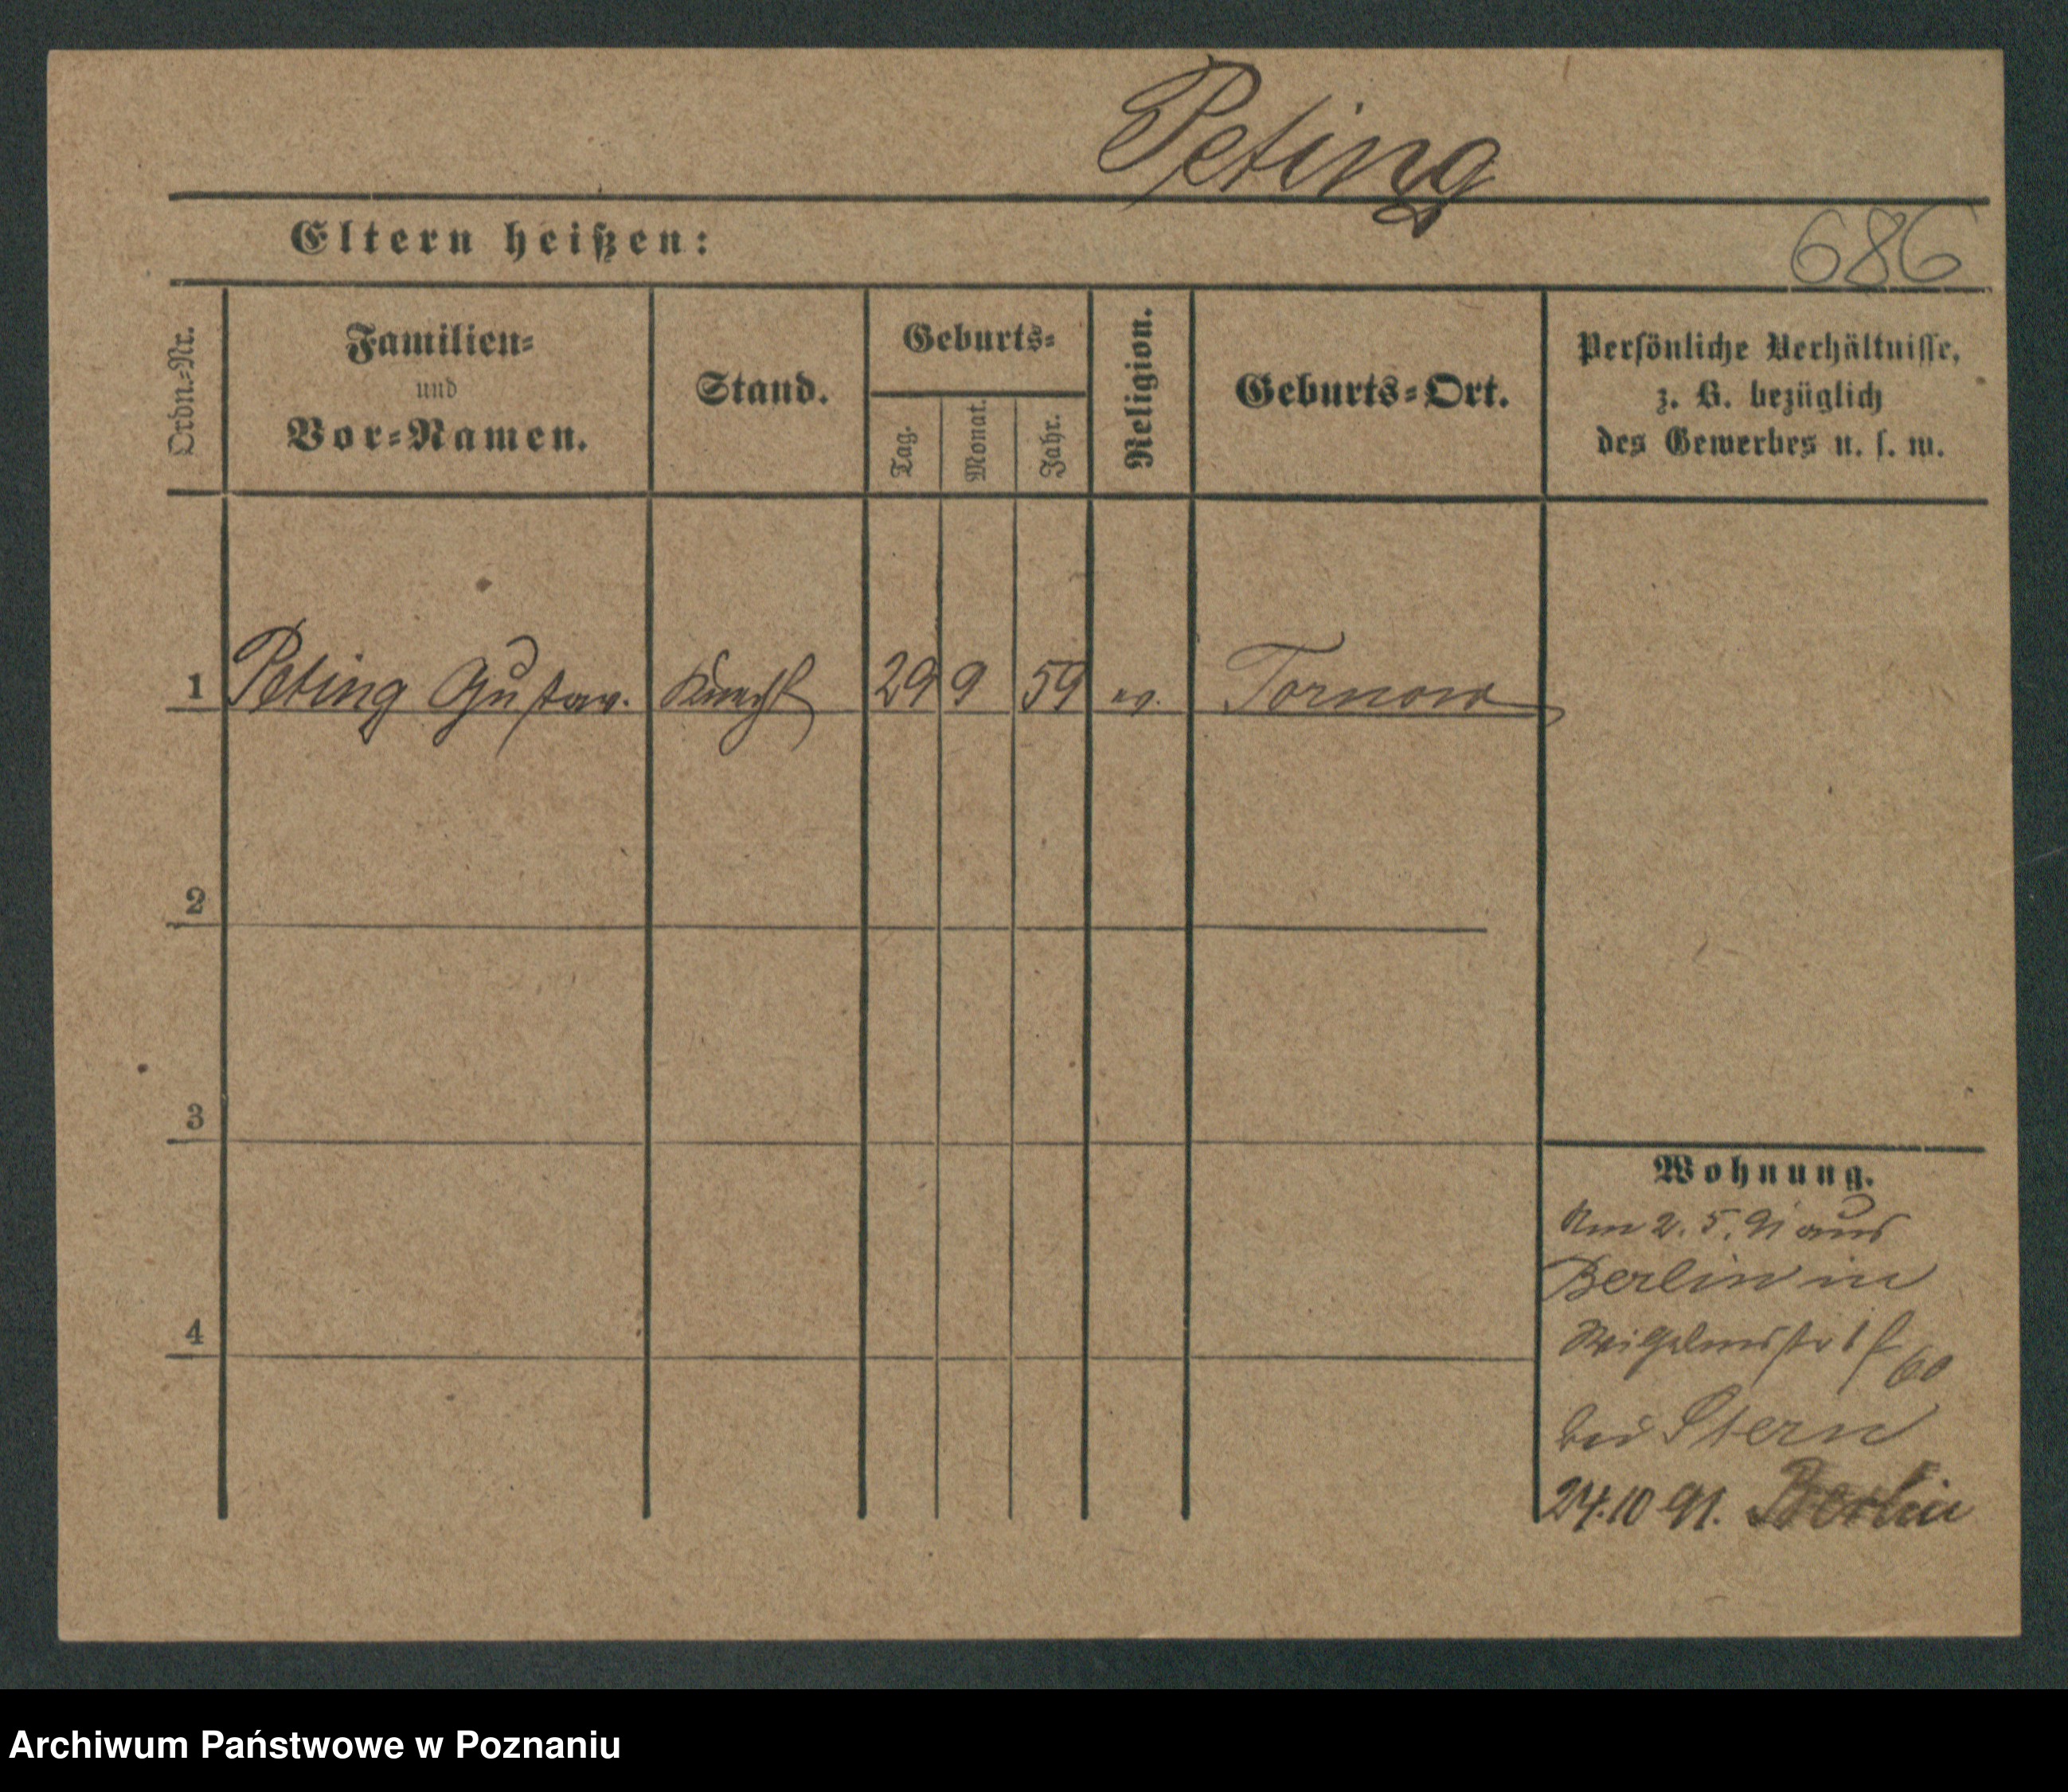 Peting
Eltern heißen:
686
Ordn.-Nr.
Familien-
und
Vor-Namen.
Stand.
Geburts-
Tag.
Monat.
Jahr.
Religion.
Geburts-Ort.
Persönliche Verhältnisse,
z. B. bezüglich
des Gewerbes u. s. w.
1 Peting Gustav. Knecht 29 9 59 ev. Tornow
2
3
4
Wohnung.
Am 2. 5. 91 aus
Berlin in
60
bei Stern
24.10 91. Berlin
Archiwum Państwowe w Poznaniu